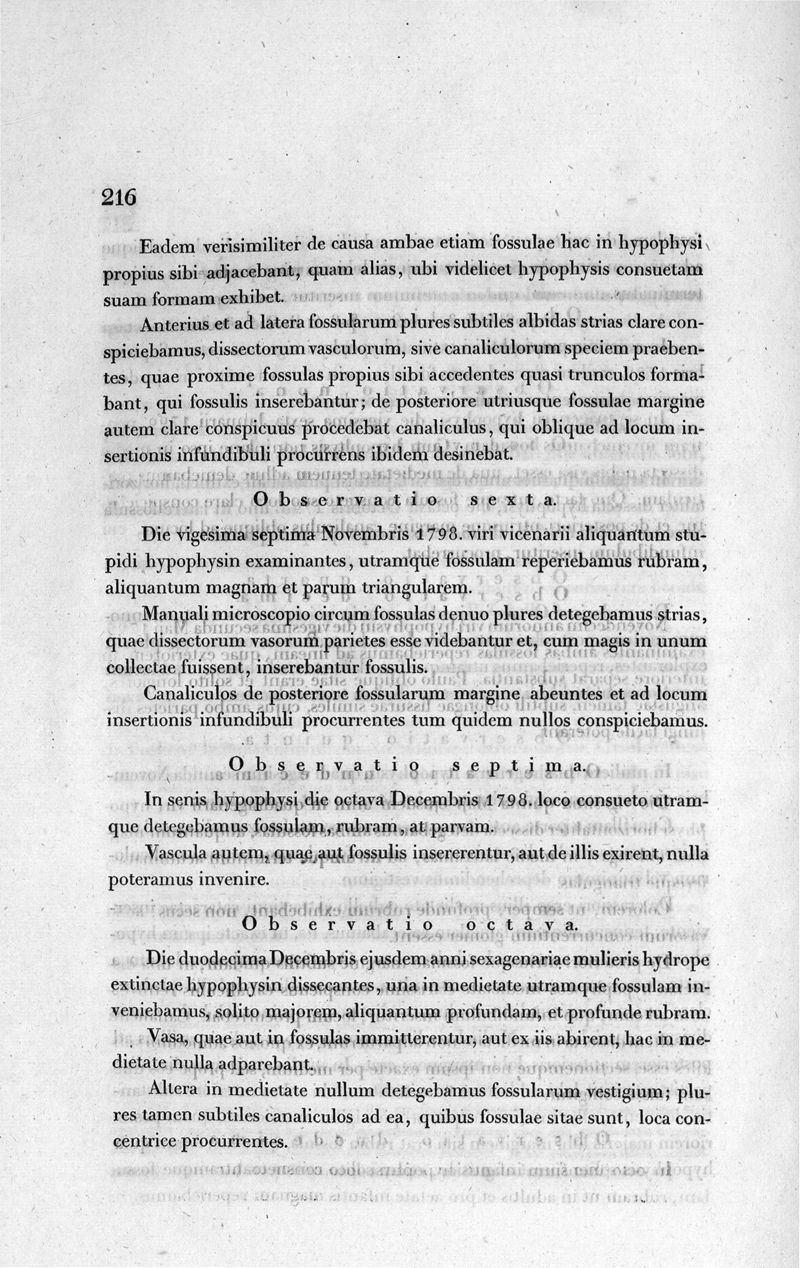 216
Eadem verisimiliter de causa ambae etiam fossulae hac in hypophysi
propius sibi adjacebant, quam alias, ubi videlicet hypophysis consuetam
suam formam exhibet.
Anterius et ad latera fossularum plures subtiles albidas strias clare con-
spiciebamus, dissectorum vasculorum, sive canaliculorum speciem praeben-
tes, quae proxime fossulas propius sibi accedentes quasi trunculos forma-
bant, qui fossulis inserebantur; de posteriore utriusque fossulae margine
autem clare conspicuus procedebat canaliculus, qui oblique ad locum in-
sertionis infundibuli procurrens ibidem desinebat.
Observatio sexta.
Die vigesima septima Novembris 1798. viri vicenarii aliquantum stu-
pidi hypophysin examinantes, utramque fossulam reperiebamus rubram,
aliquantum magnam et parum triangularem.
Manuali microscopio circum fossulas denuo plures detegebamus strias,
quae dissectorum vasorum parietes esse videbantur et, cum magis in unum
collectae fuissent, inserebantur fossulis.
Canaliculos de posteriore fossularum margine abeuntes et ad locum
insertionis infundibuli procurrentes tum quidem nullos conspiciebamus.
Observatio septima.
In senis hypophysi die octava Decembris 1798. loco consueto utram-
que detegebamus fossulam, rubram, at parvam.
Vascula autem, quae aut fossulis insererentur, aut de illis exirent, nulla
poteramus invenire.
Observatio octava.
Die duodecima Decembris ejusdem anni sexagenariae mulieris hydrope
extinctae hypophysin dissecantes, una in medietate utramque fossulam in-
veniebamus, solito majorem, aliquantum profundam, et profunde rubram.
Vasa, quae aut in fossulas immitterentur, aut ex iis abirent, hac in me-
dietate nulla adparebant.
Altera in medietate nullum detegebamus fossularum vestigium; plu-
res tamen subtiles canaliculos ad ea, quibus fossulae sitae sunt, loca con-
centrice procurrentes.